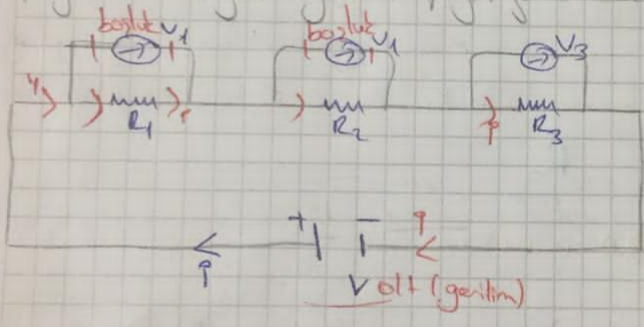 boşluk V1 boşluk V1 V3
R1 R2 R3
+ -
Volt (gerilim)